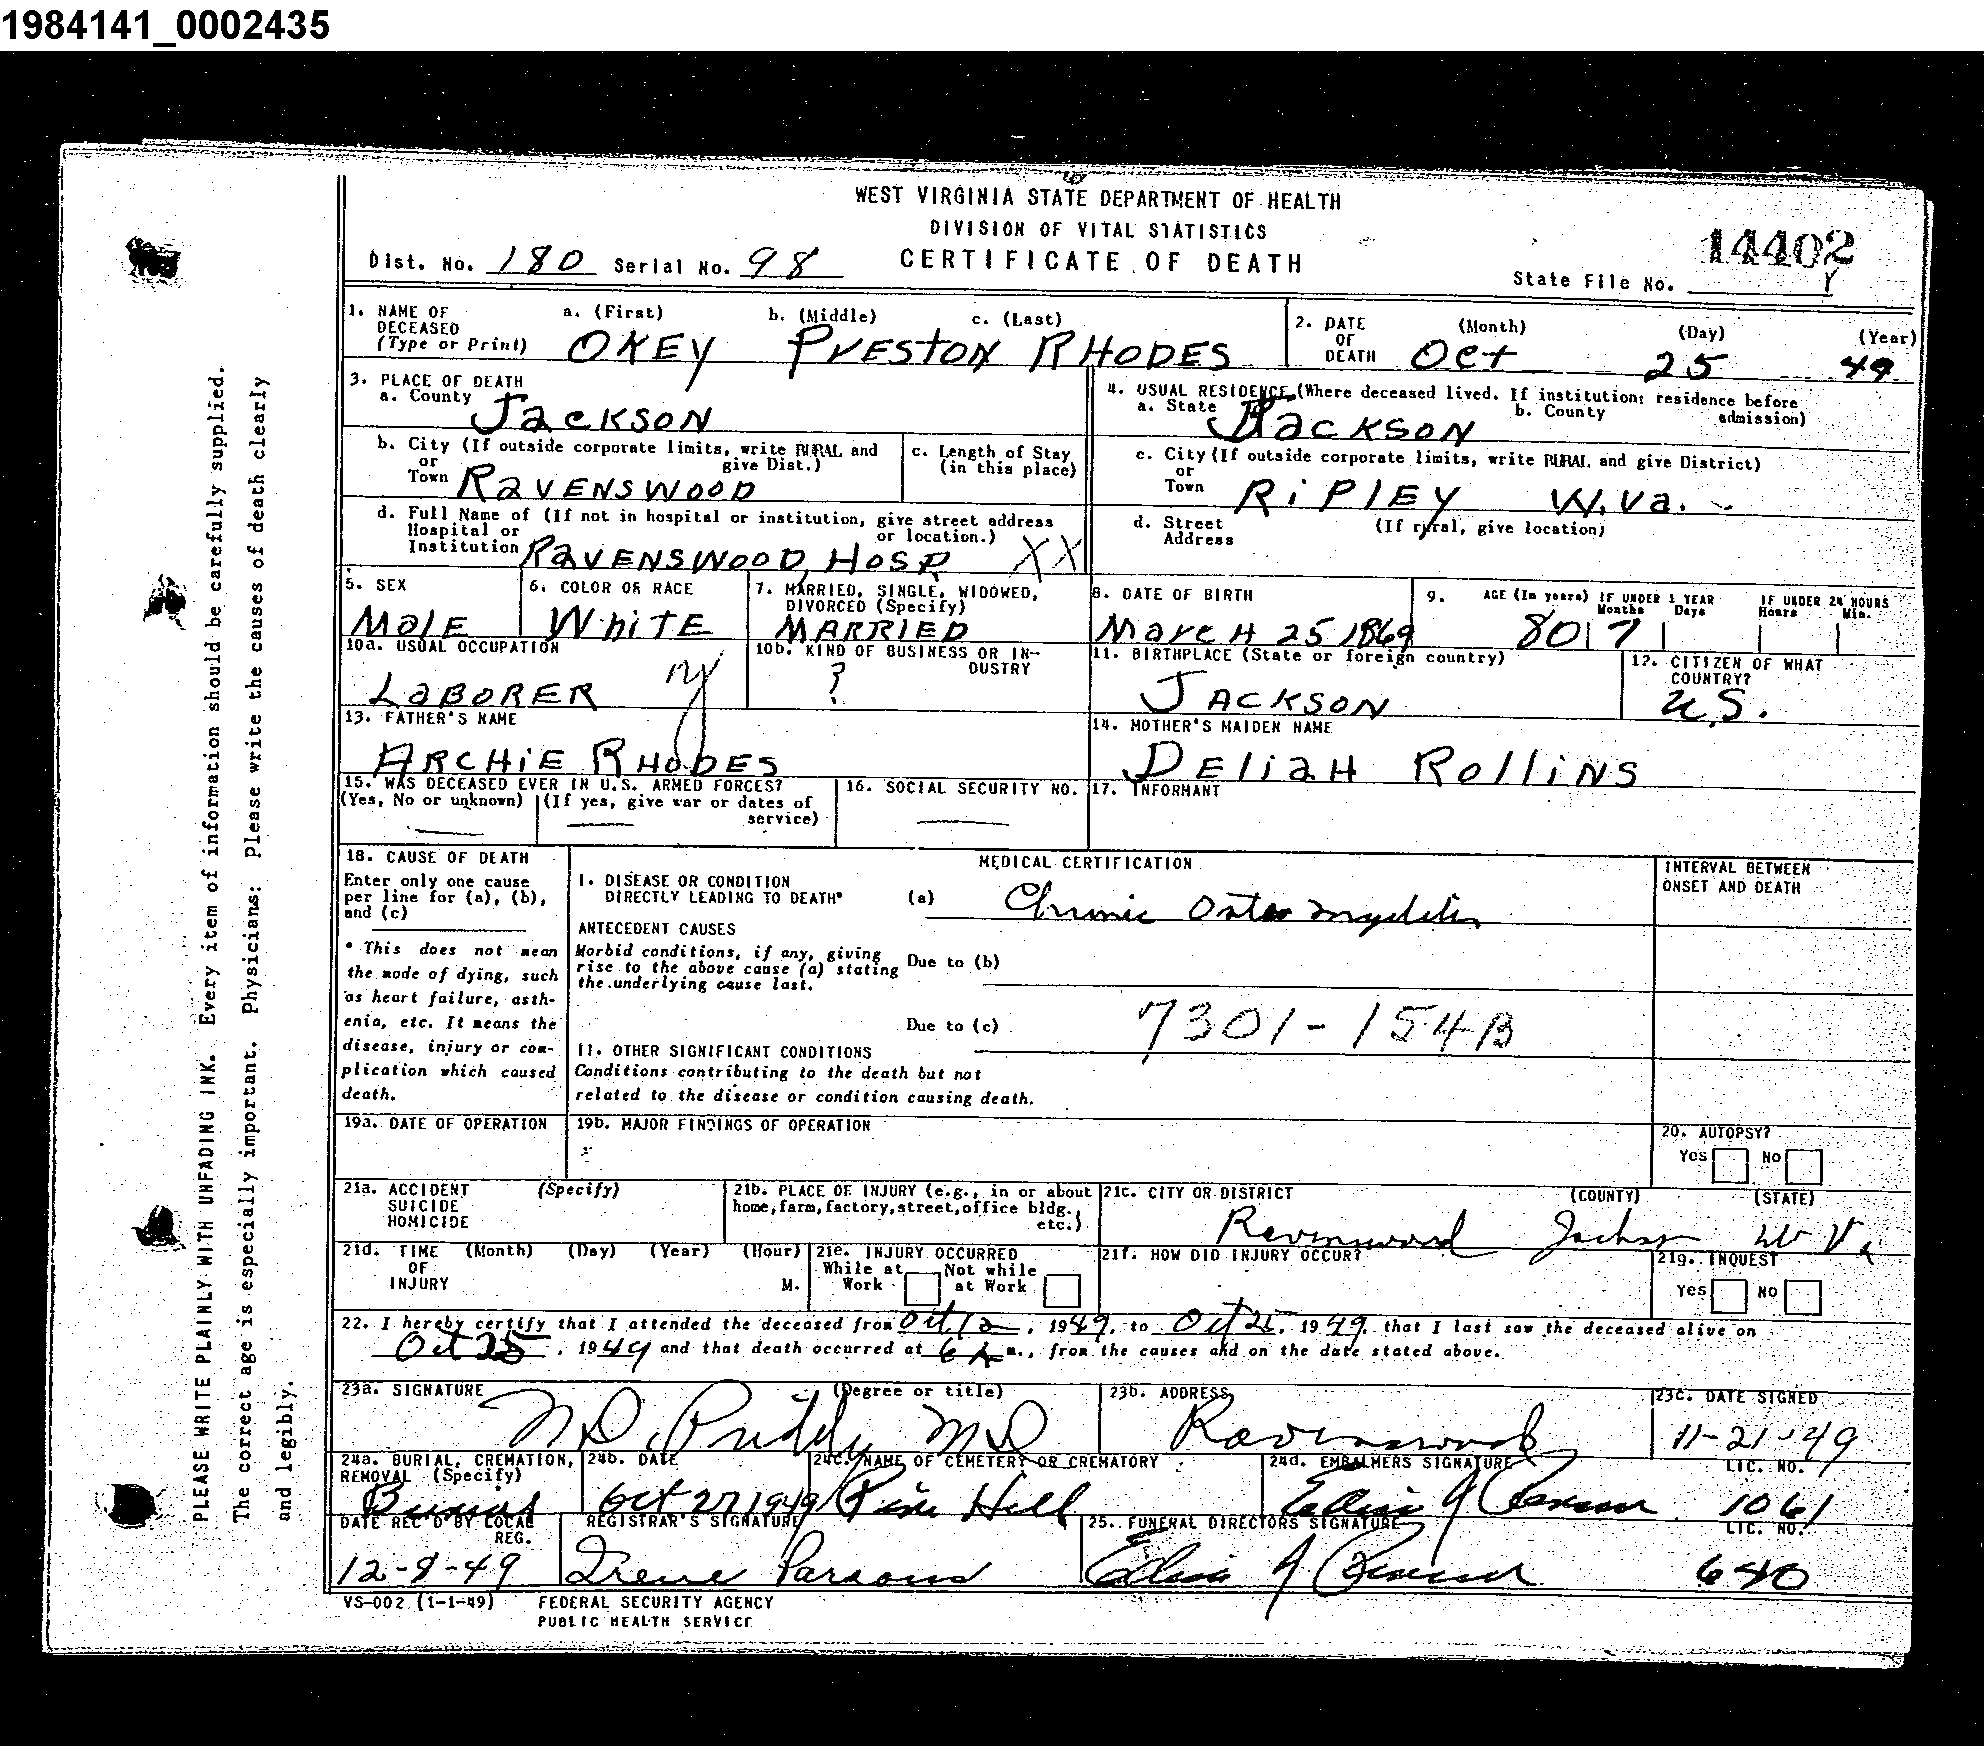 1984141_0002435
WEST VIRGINIA STATE DEPARTMENT OF HEALTH
DIVISION OF VITAL STATISTICS
CERTIFICATE OF DEATH
Dist. No. 180 Serial No. 98
14402
State File No. Y
1. NAME OF DECEASED (Type or Print) a. (First) b. (Middle) c. (Last)
OKEY PRESTON RHODES
2. DATE OF DEATH (Month) (Day) (Year)
Oct 25 49
3. PLACE OF DEATH
a. County JACKSON
b. City (If outside corporate limits, write RURAL and give Dist.) or Town RAVENSWOOD
c. Length of Stay (in this place)
d. Full Name of (If not in hospital or institution, give street address or location.) Hospital or Institution RAVENSWOOD HOSP XX
4. USUAL RESIDENCE (Where deceased lived. If institution: residence before admission)
a. State b. County
JACKSON
c. City (If outside corporate limits, write RURAL and give District) or Town RIPLEY W.Va.
d. Street Address (If rural, give location)
5. SEX
MalE
6. COLOR OR RACE
WhiTE
7. MARRIED, SINGLE, WIDOWED, DIVORCED (Specify)
MARRIED
8. DATE OF BIRTH
MarcH 25 1869
9. AGE (In years) IF UNDER 1 YEAR Months Days IF UNDER 24 HOURS Hours Min.
80 7
10a. USUAL OCCUPATION
LaBORER
10b. KIND OF BUSINESS OR INDUSTRY
?
11. BIRTHPLACE (State or foreign country)
JACKSON
12. CITIZEN OF WHAT COUNTRY?
U.S.
13. FATHER'S NAME
ARCHiE RHODES
14. MOTHER'S MAIDEN NAME
DEliaH RolliNS
15. WAS DECEASED EVER IN U.S. ARMED FORCES?
(Yes, No or unknown) (If yes, give war or dates of service)
16. SOCIAL SECURITY NO.
17. INFORMANT
18. CAUSE OF DEATH
Enter only one cause per line for (a), (b), and (c)
* This does not mean the mode of dying, such as heart failure, asthenia, etc. It means the disease, injury or complication which caused death.
MEDICAL CERTIFICATION
INTERVAL BETWEEN ONSET AND DEATH
I. DISEASE OR CONDITION DIRECTLY LEADING TO DEATH* (a) Chronic Osteo myelitis
ANTECEDENT CAUSES
Morbid conditions, if any, giving rise to the above cause (a) stating the underlying cause last.
Due to (b)
Due to (c)
7301-154B
11. OTHER SIGNIFICANT CONDITIONS
Conditions contributing to the death but not related to the disease or condition causing death.
19a. DATE OF OPERATION
19b. MAJOR FINDINGS OF OPERATION
20. AUTOPSY?
Yes No
21a. ACCIDENT SUICIDE HOMICIDE (Specify)
21b. PLACE OF INJURY (e.g., in or about home, farm, factory, street, office bldg., etc.)
21c. CITY OR DISTRICT (COUNTY) (STATE)
Ravenswood Jackson W Va
21d. TIME OF INJURY (Month) (Day) (Year) (Hour) M.
21e. INJURY OCCURRED
While at Work Not while at Work
21f. HOW DID INJURY OCCUR?
21g. INQUEST
Yes No
22. I hereby certify that I attended the deceased from Oct 12, 1949, to Oct 25, 1949, that I last saw the deceased alive on
Oct 25, 1949 and that death occurred at 6 A m., from the causes and on the date stated above.
23a. SIGNATURE (Degree or title)
Priddy MD
23b. ADDRESS
Ravenswood
23c. DATE SIGNED
11-21-49
24a. BURIAL, CREMATION, REMOVAL (Specify)
Burial
24b. DATE
Oct 27 1949
24c. NAME OF CEMETERY OR CREMATORY
Pine Hill
24d. EMBALMERS SIGNATURE LIC. NO.
1061
DATE REC'D BY LOCAL REG.
12-8-49
REGISTRAR'S SIGNATURE
Irene Parsons
25. FUNERAL DIRECTORS SIGNATURE LIC. NO.
640
VS-002 (1-1-49) FEDERAL SECURITY AGENCY
PUBLIC HEALTH SERVICE
PLEASE WRITE PLAINLY WITH UNFADING INK. Every item of information should be carefully supplied.
The correct age is especially important. Physicians: please write the causes of death clearly
and legibly.